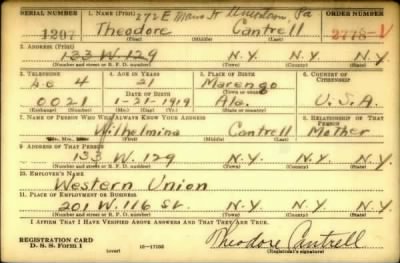 SERIAL NUMBER 1. NAME (Print) 272 E. Main St Pa ORDER NUMBER
1207 Theodore Cantrell 2778-V
(First) (Middle) (Last)
2. ADDRESS (Print)
133 W. 129 N.Y. N.Y. N.Y.
(Number and street or R. F. D. number) (Town) (County) (State)
3. TELEPHONE 4. AGE IN YEARS 5. PLACE OF BIRTH 6. COUNTRY OF CITIZENSHIP
4 21 Marengo
DATE OF BIRTH (Town or county)
0021 1-21-1919 Ala. U.S.A.
(Exchange) (Number) (Mo.) (Day) (Yr.) (State or country)
7. NAME OF PERSON WHO WILL ALWAYS KNOW YOUR ADDRESS 8. RELATIONSHIP OF THAT PERSON
Wilhelmina Cantrell Mother
(Mr., Mrs., Miss) (First) (Middle) (Last)
9. ADDRESS OF THAT PERSON
133 W. 129 N.Y. N.Y. N.Y.
(Number and street or R. F. D. number) (Town) (County) (State)
10. EMPLOYER'S NAME
Western Union
11. PLACE OF EMPLOYMENT OR BUSINESS
201 W. 116 St. N.Y. N.Y. N.Y.
(Number and street or R. F. D. number) (Town) (County) (State)
I AFFIRM THAT I HAVE VERIFIED ABOVE ANSWERS AND THAT THEY ARE TRUE.
REGISTRATION CARD
D. S. S. Form 1 (over) 16-17105 Theodore Cantrell
(Registrant's signature)